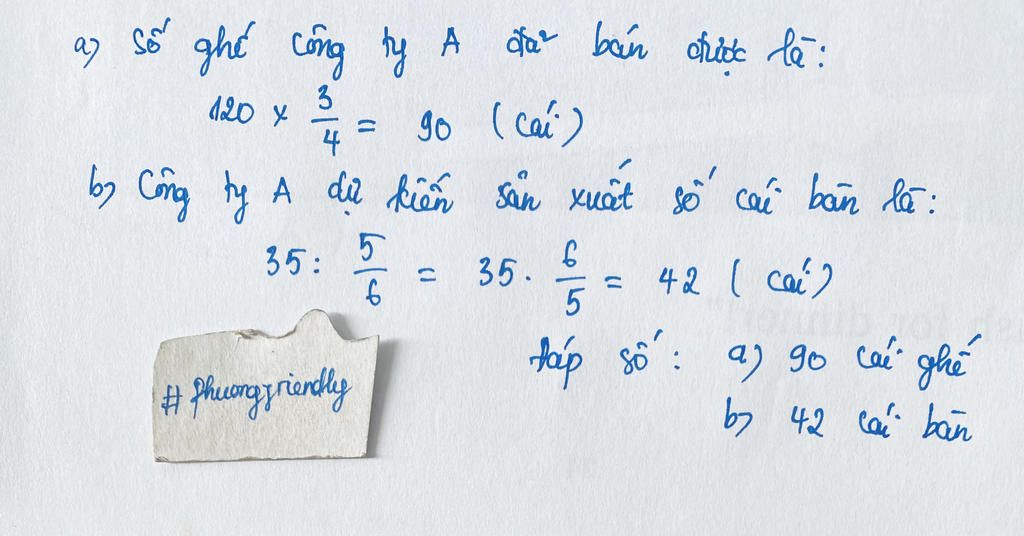 a) Số ghế công ty A đã bán được là:
120 x 3/4 = 90 (cái)
b) Công ty A dự kiến sản xuất số cái bàn là:
35 : 5/6 = 35 . 6/5 = 42 (cái)
Đáp số: a) 90 cái ghế
b) 42 cái bàn
# phuongfriendly